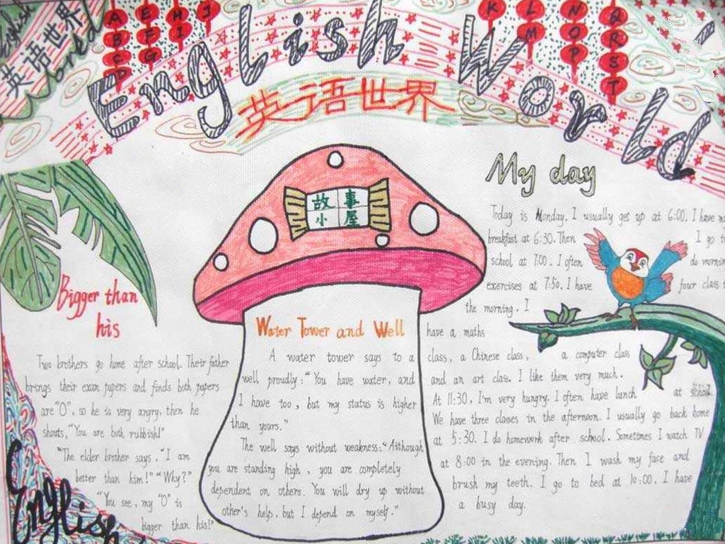 英语世界
A B C D
E F G
H I
J
K
L M
N O P
Q R S T
English World
英语世界
故事
小屋
My day
Today is Monday. I usually get up at 6:00. I have my
breakfast at 6:30. Then I go to
school at 7:00. I often do morning
exercises at 7:50. I have four class
the morning. I
have a maths
class, a Chinese class, a computer class
and an art class. I like them very much.
At 11:30, I'm very hungry. I often have lunch at school.
We have three classes in the afternoon. I usually go back home
at 5:30. I do homework after school. Sometimes I watch TV
at 8:00 in the evening. Then I wash my face and
brush my teeth. I go to bed at 10:00. I have
a busy day.
Bigger than
his
Two brothers go home after school. Their father
brings their exam papers and finds both papers
are "0", so he is very angry, then he
shouts, "You are both rubbish!"
"The elder brother says. "I am
better than him!" "Why?"
"You see, my "0" is
bigger than his!"
Water Tower and Well
A water tower says to a
well proudly: "You have water, and
I have too, but my status is higher
than yours."
The well says without weakness: "Although
you are standing high, you are completely
dependent on others. You will dry up without
other's help, but I depend on myself."
English